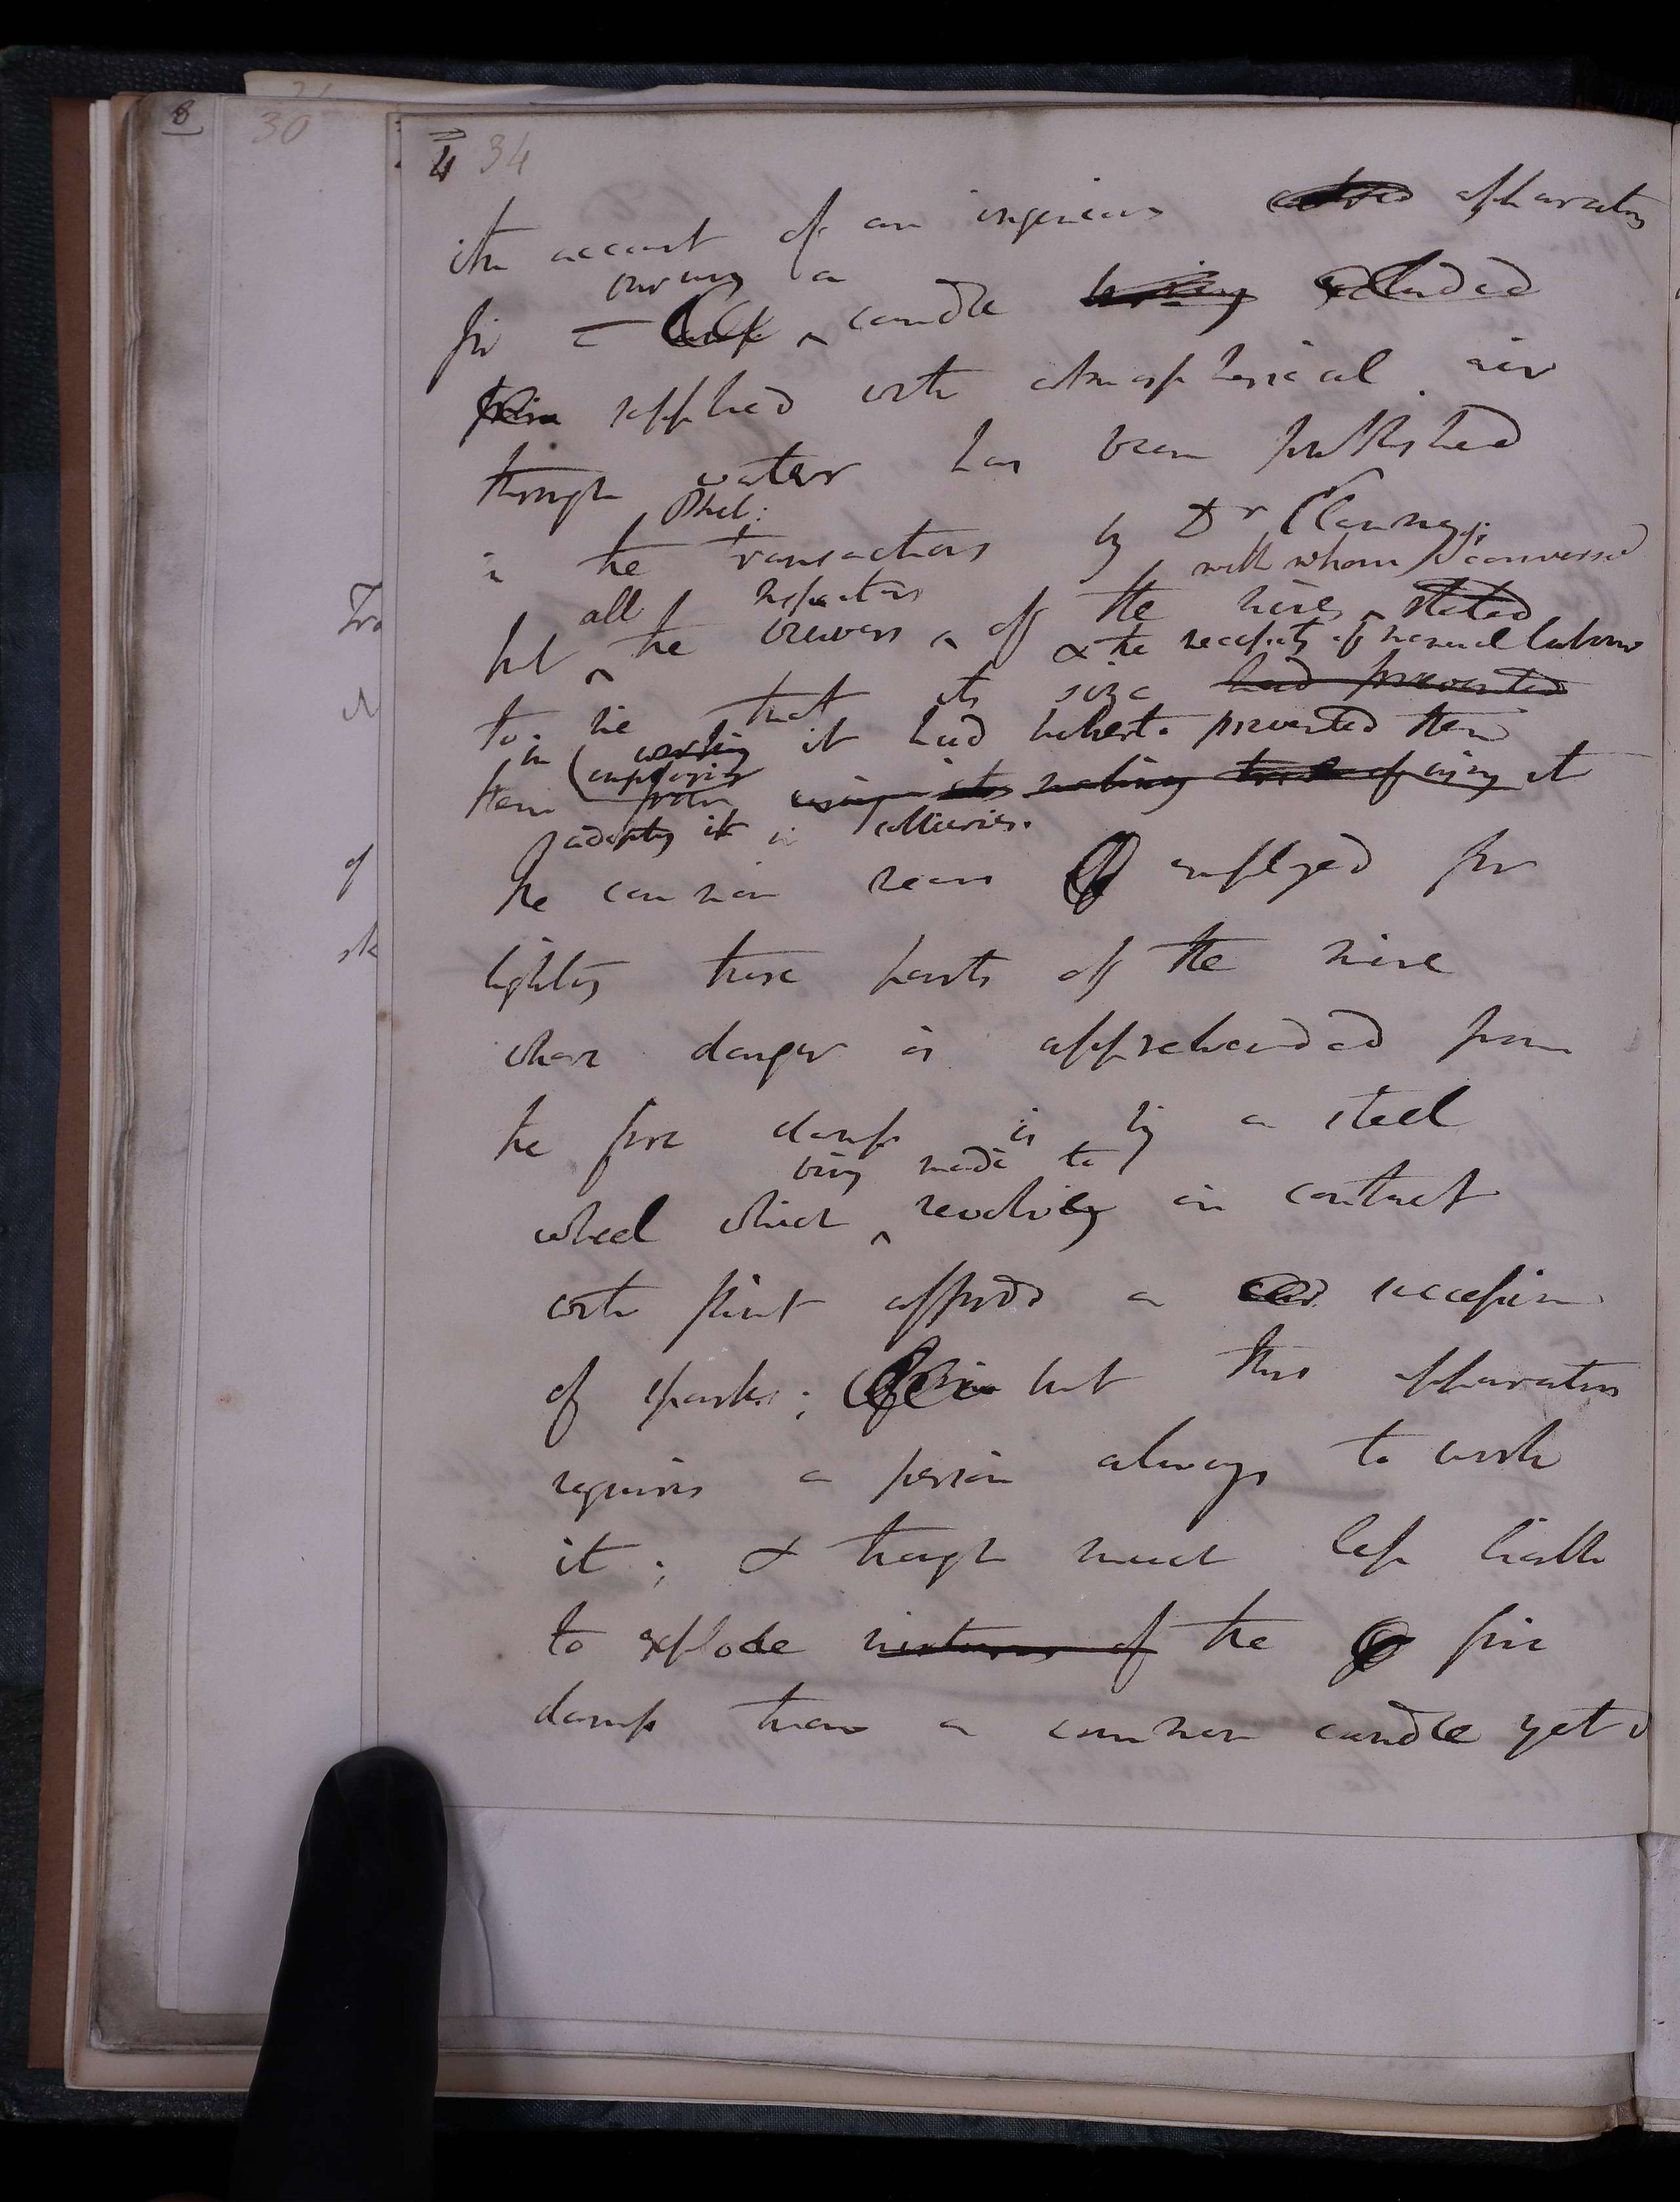 8
30
4 34
the account of an ingenious apparatus
burning a
for candle excluded
supplied with atmospherical air
through water has been published
Phil:
in the transactions by Dr Clanny;
with whom I conversed
all inspectors
but the viewers of the mines stated
& the necessity of manual labour
to me that its size had prevented
in working it had hitherto prevented them
employing
them from using making trial of using it
adopting it in collieries.
the common means employed for
lighting those parts of the mine
where danger is apprehended from
the fire damp is by a steel
being made to
wheel which revolving in contact
with flint affords a succession
of sparks; but this apparatus
requires a person always to work
it; & though much less liable
to explode mixtures of the fire
damp than a common candle yet
of